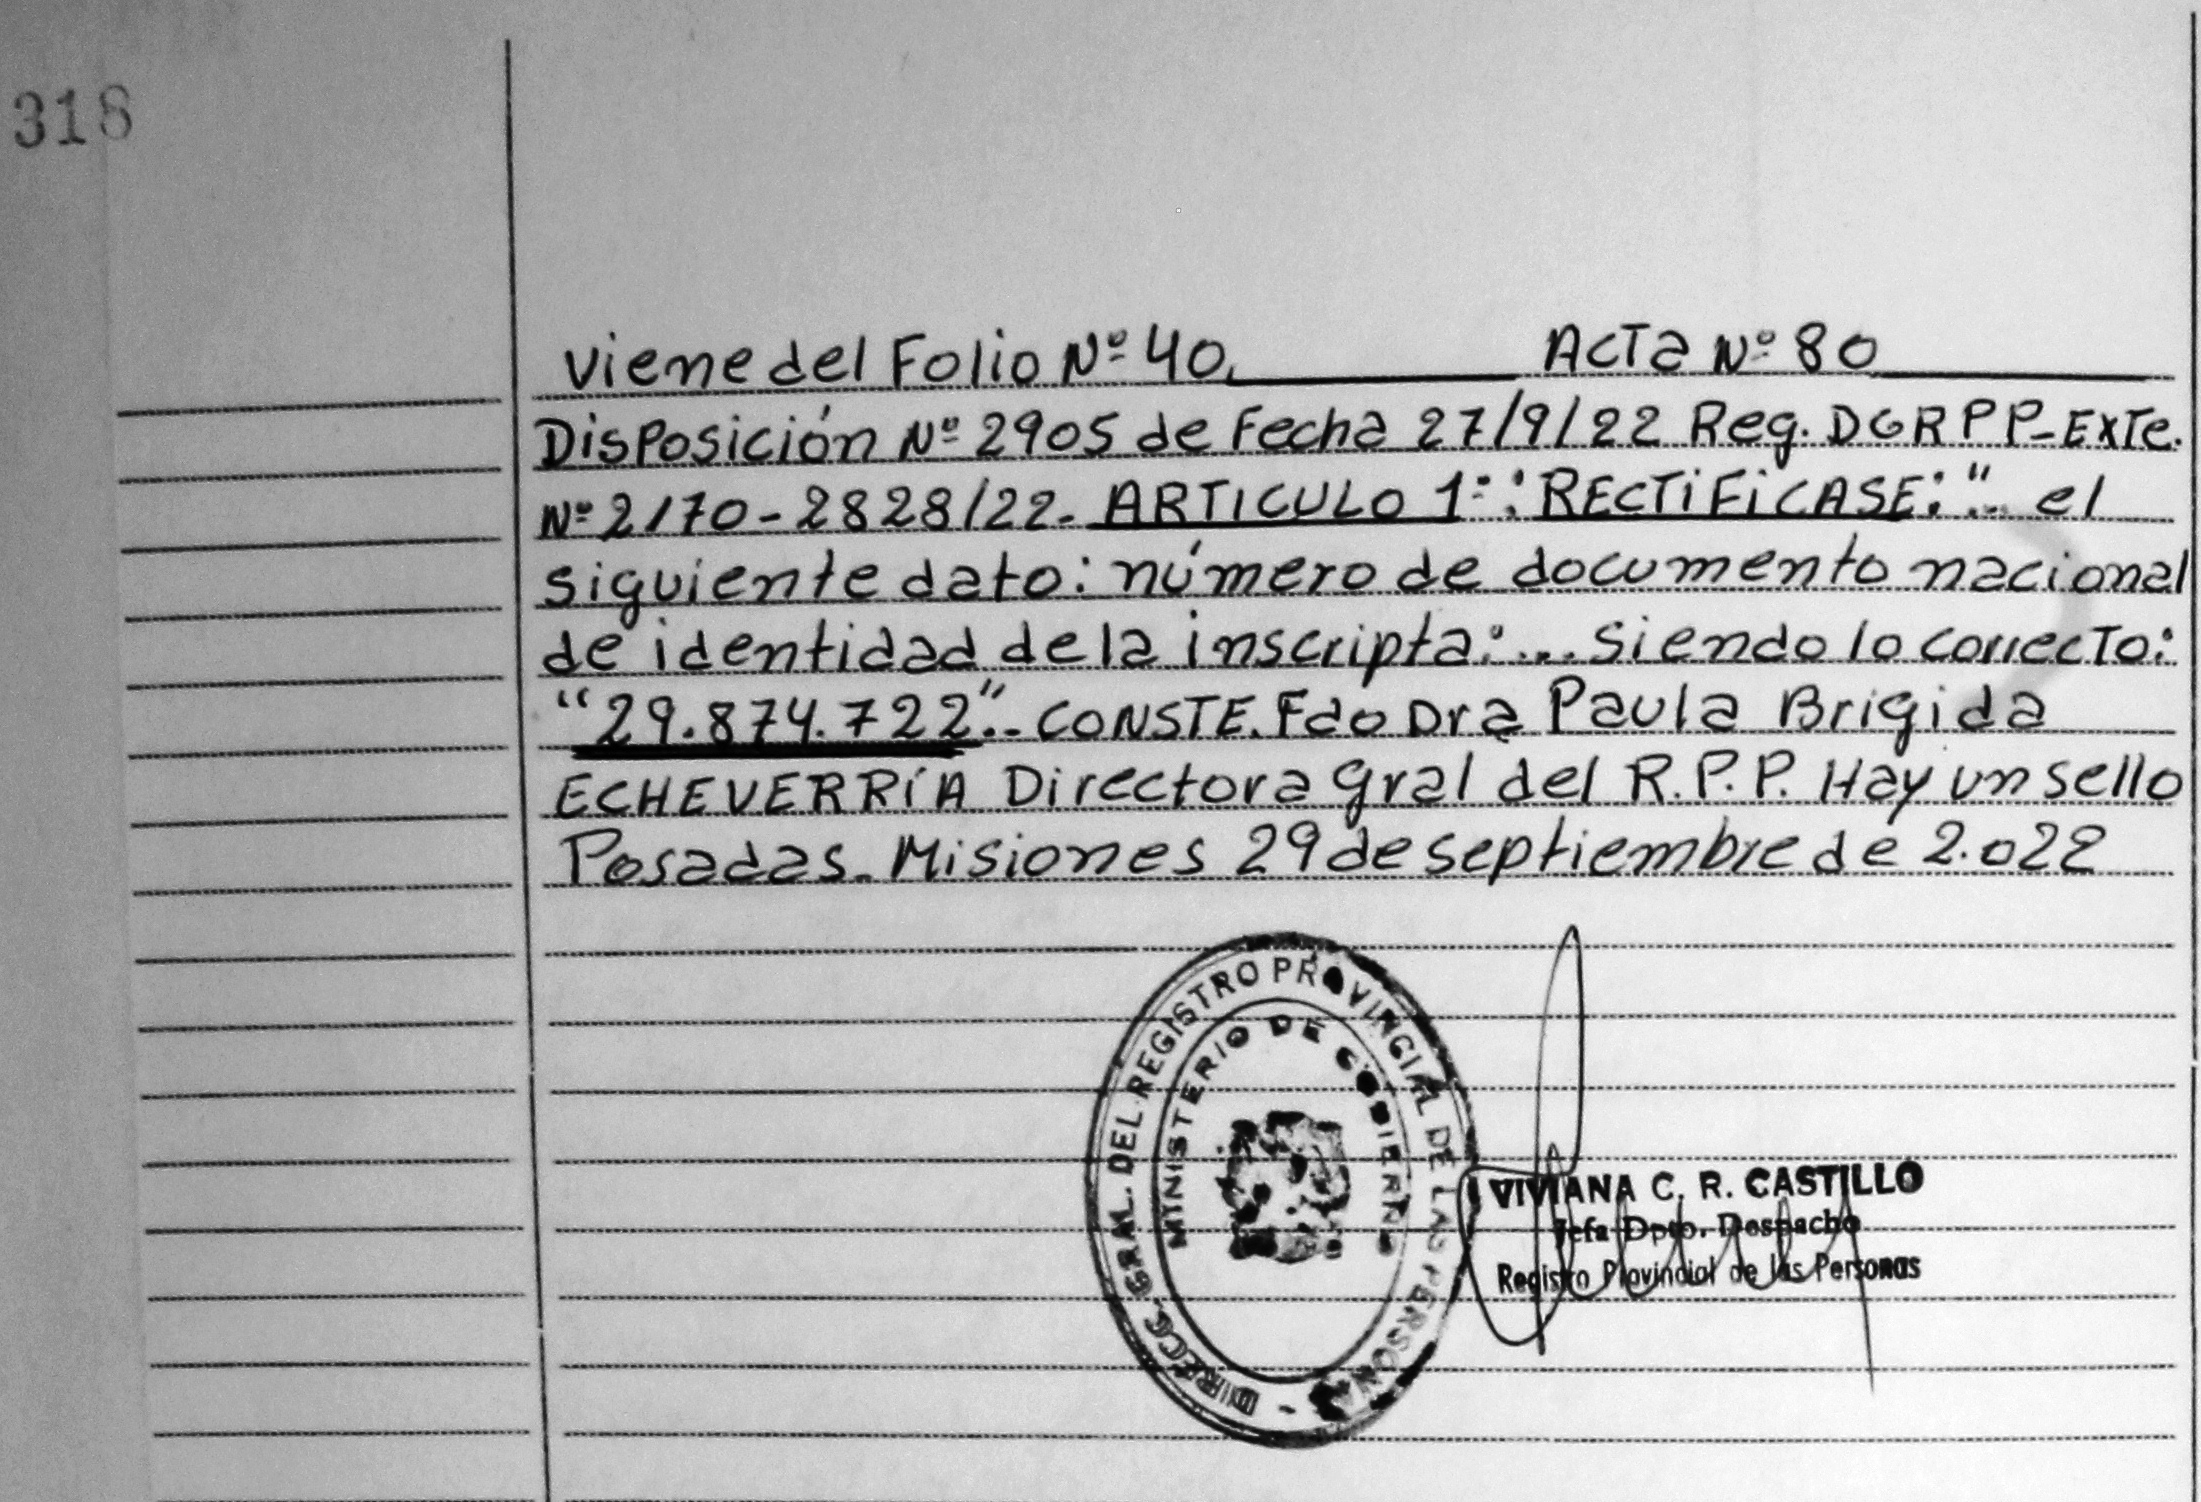 318
Viene del Folio Nº 40. ACTa Nº 80
Disposición Nº 2905 de Fecha 27/9/22 Reg. DGRPP-EXTe.
Nº 2170-2828/22. ARTICULO 1º: "RECTIFICASE:".. el
siguiente dato: número de documento nacional
de identidad de la inscripta:... Siendo lo correcTo:
"29.874.722".- CONSTE. Fdo Dra Paula Brigida
ECHEVERRíA Directora Gral del R.P.P. Hay un sello
Posadas. Misiones 29 de septiembre de 2.022
DIRECC. GRAL. DEL REGISTRO PROVINCIAL DE LAS PERSONAS -
MINISTERIO DE GOBIERNO
VIVIANA C. R. CASTILLO
Jefa Dpto. Despacho
Registro Provincial de las Personas